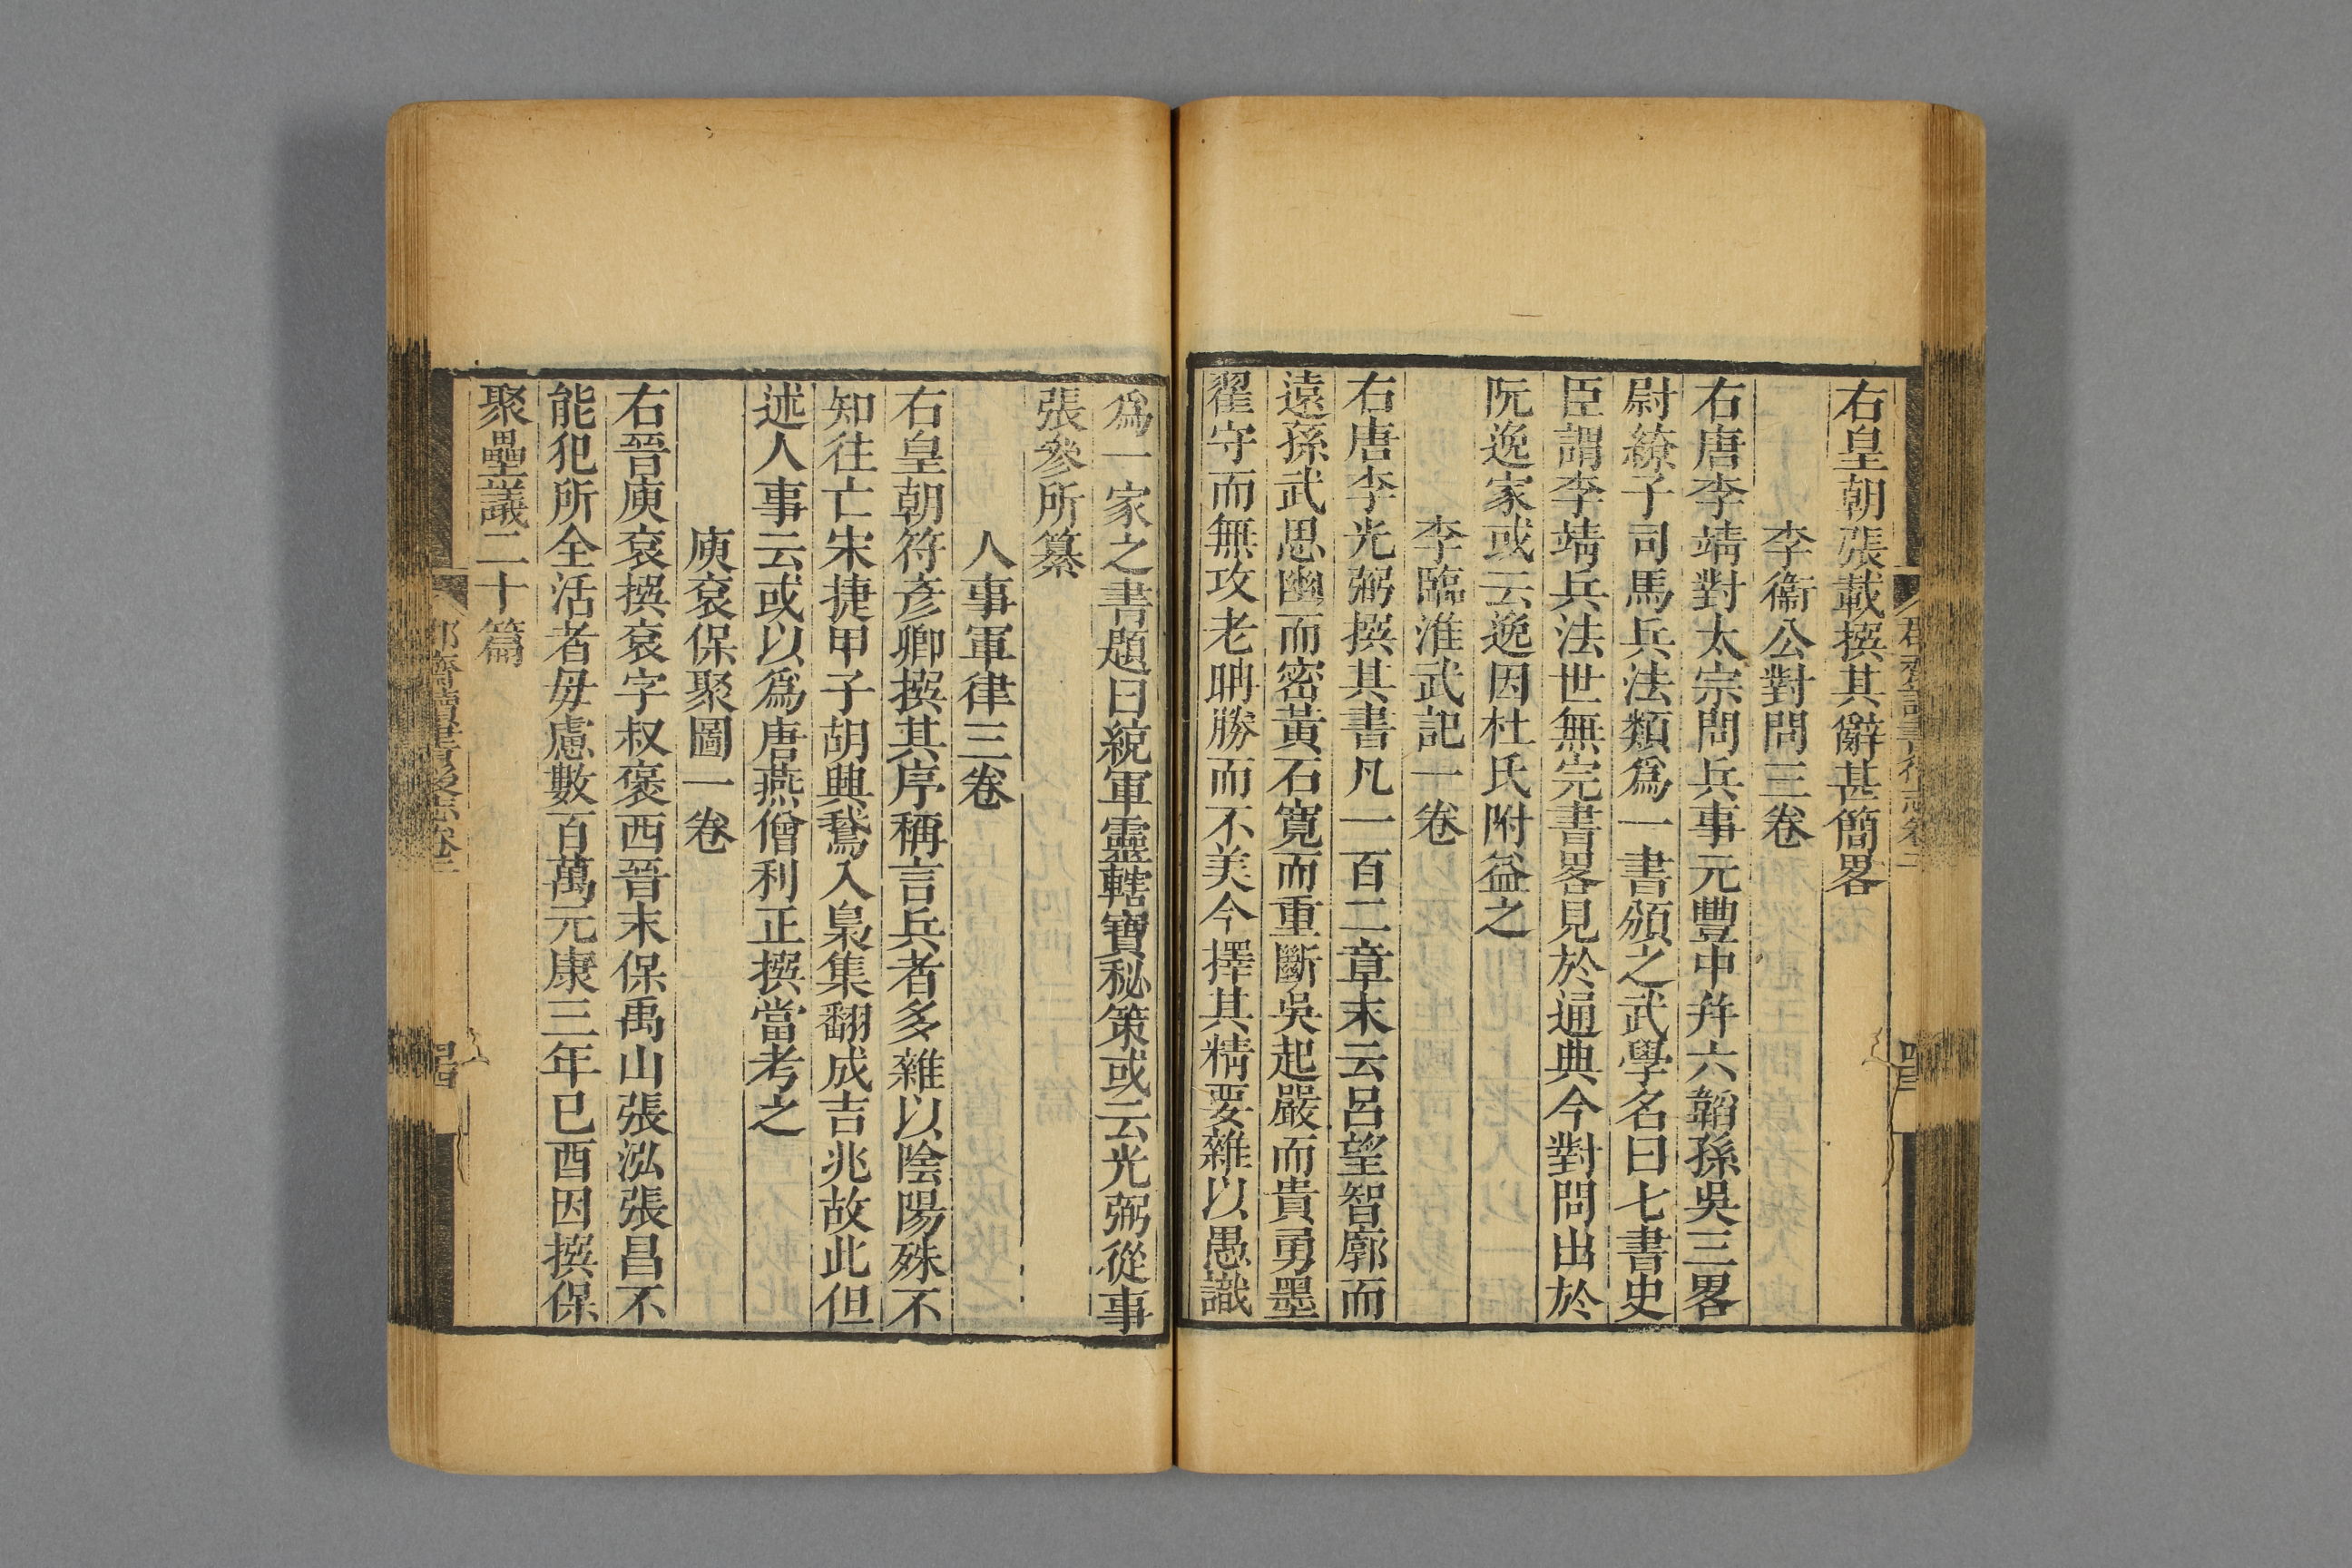 右皇朝張載撰其辭甚簡畧
李衞公對問三卷
右唐李靖對太宗問兵事元豐中并六韜孫吳三畧
尉繚子司馬兵法類爲一書頒之武學名曰七書史
臣謂李靖兵法世無完書畧見於通典今對問出於
阮逸家或云逸因杜氏附益之
李臨淮武記一卷
右唐李光弼撰其書凡一百二章末云呂望智廓而
遠孫武思幽而密黃石寬而重斷吳起嚴而貴勇墨
翟守而無攻老聃勝而不美今擇其精要雜以愚識
爲一家之書題曰統軍靈轄寶秘策或云光弼從事
張參所纂
人事軍律三卷
右皇朝符彥卿撰其序稱言兵者多雜以陰陽殊不
知往亡宋捷甲子胡興鵞入梟集翻成吉兆故此但
述人事云或以爲唐燕僧利正撰當考之
庾袞保聚圖一卷
右晉庾袞撰袞字叔褒西晉末保禹山張泓張昌不
能犯所全活者毋慮數百萬元康三年已酉因撰保
聚壘議二十篇